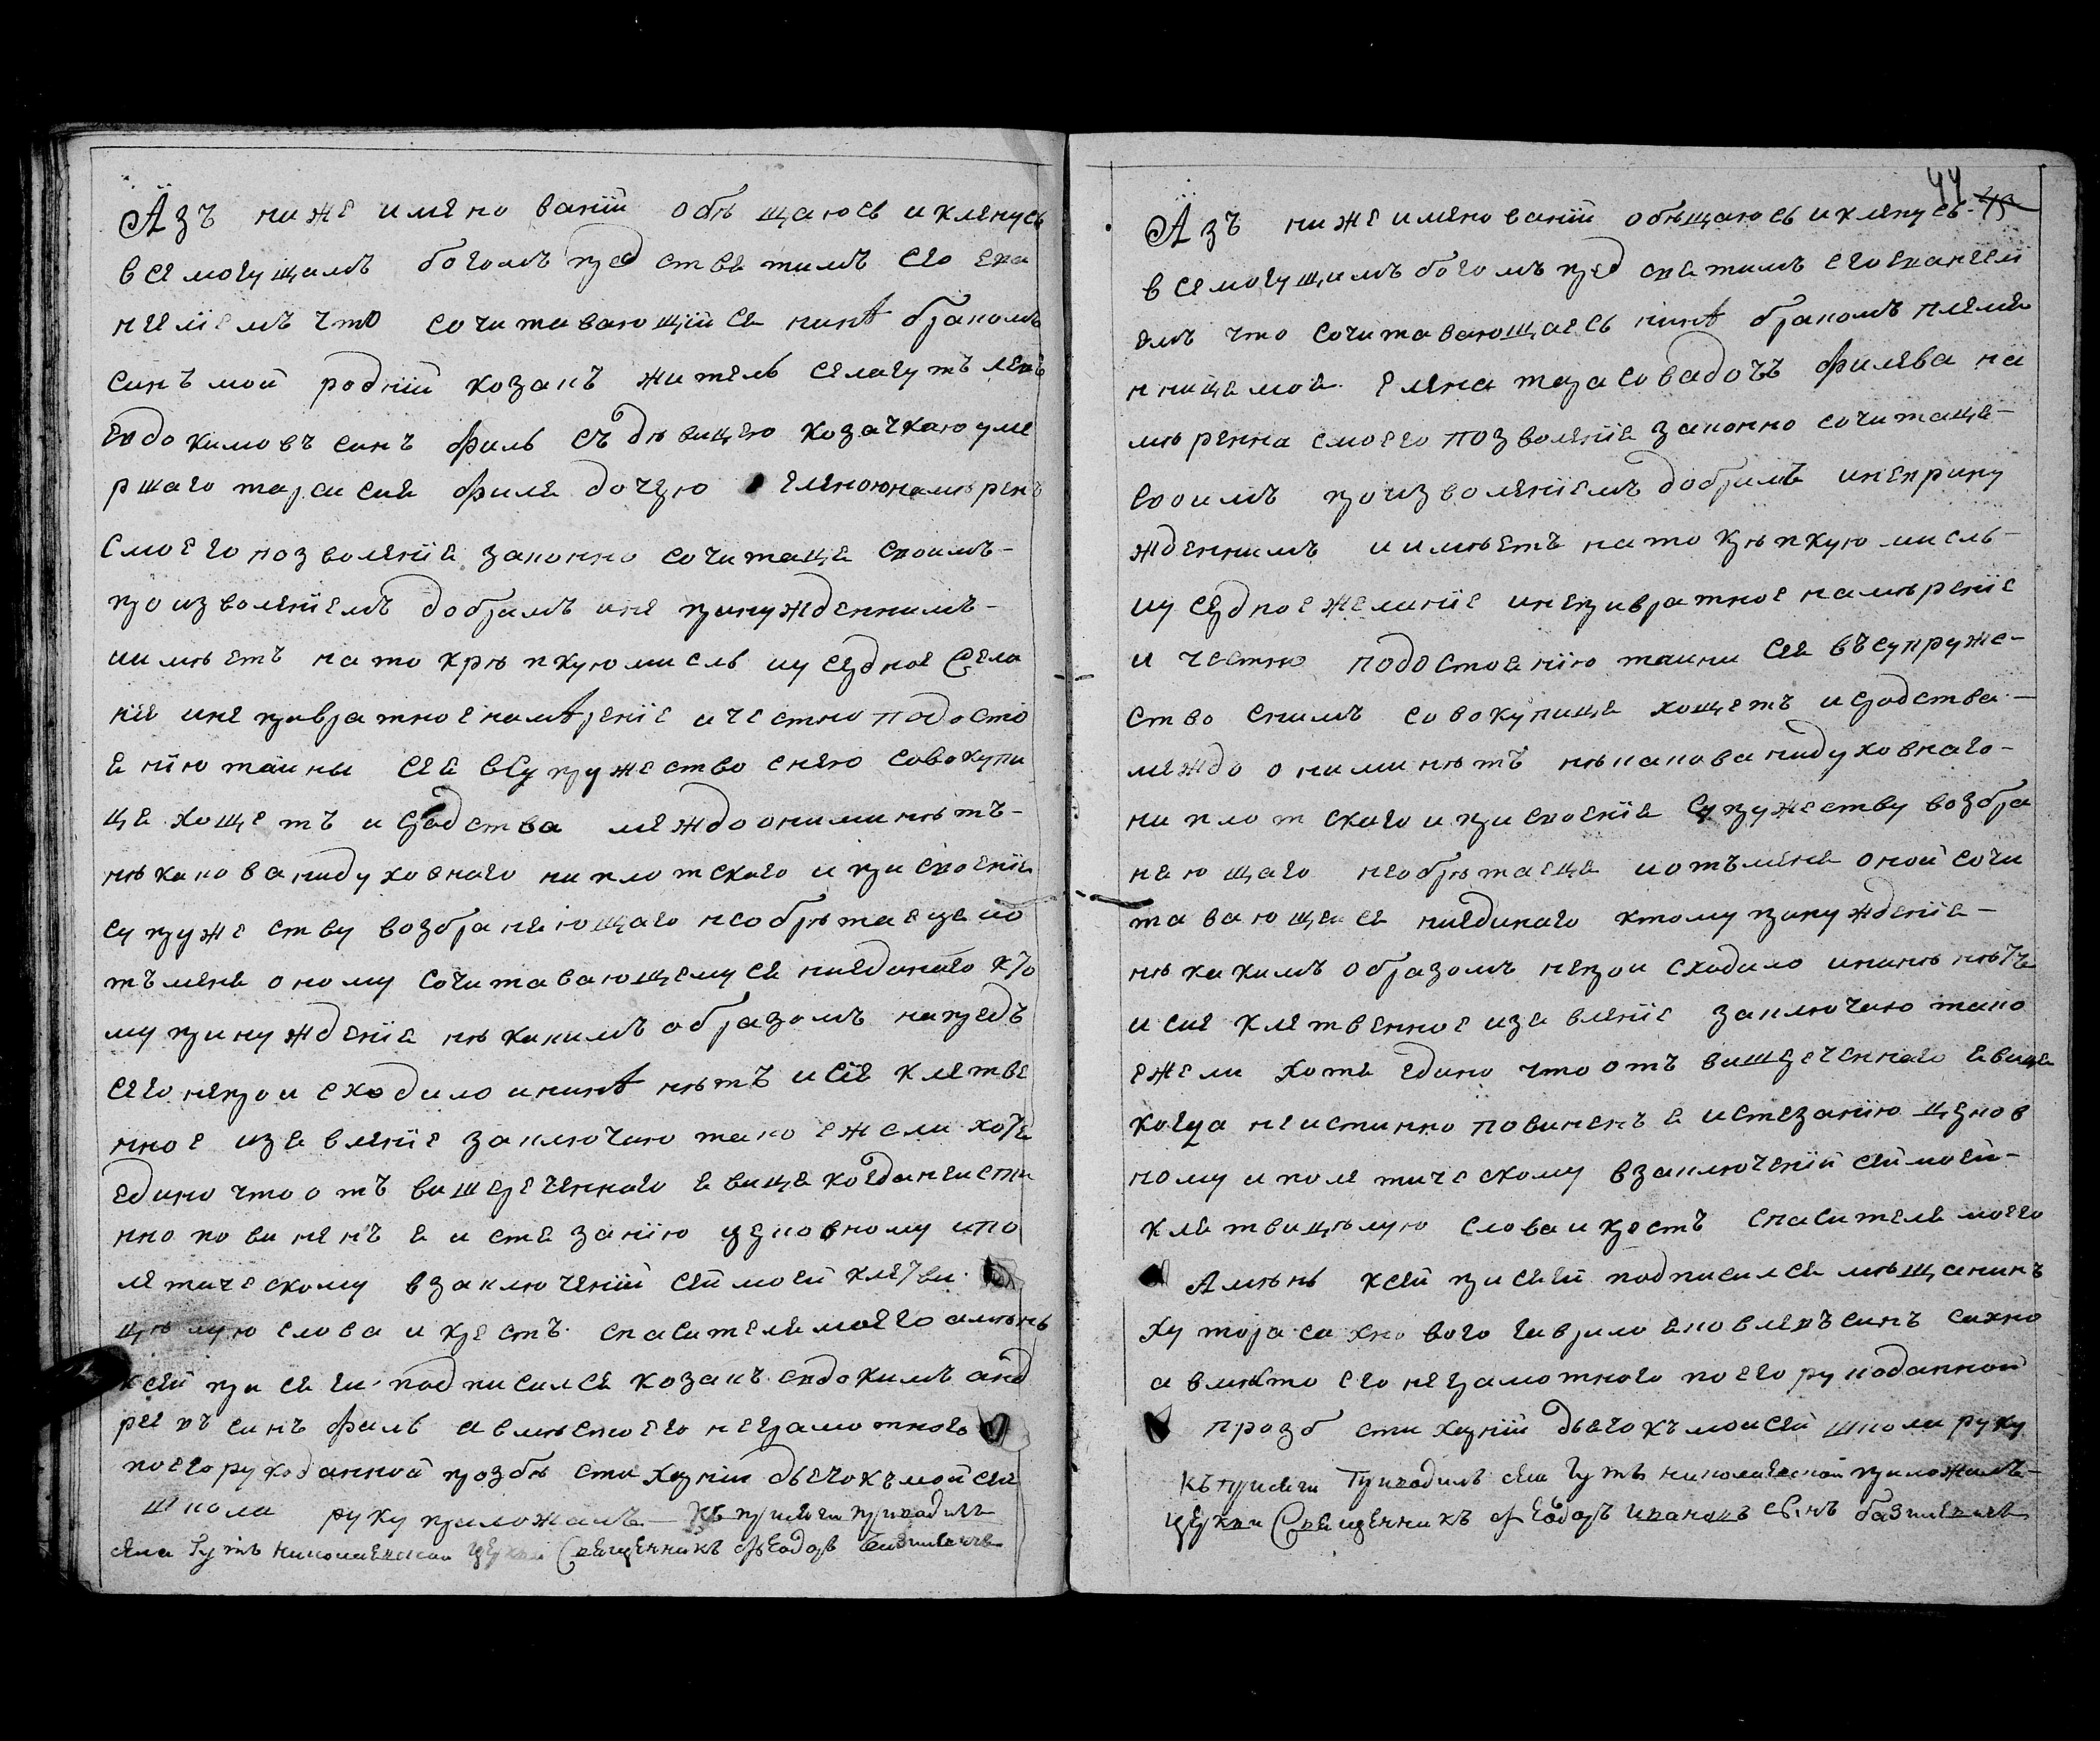 Азъ ниже имено ваній обѣ щаюсь и кленусь
всемогущамъ богомъ пред ст ве тимъ его ева
нгеліемъ что сочитавающійсе нинѣ бракомъ
синъ мой родній козакъ житель села гутъ левъ
евдокимовъ синъ филь съ дѣвицею козачкаю уме
ршаго тарасия филя дочерю еленою намѣренъ
с моего позволеніе законно сочитаце своимъ
произволеніемъ добримъ и не принужденнимъ
и имѣетъ на то крѣпкую мисль и усердное
ніе и не превратное намѣреніе и честно по досто
енію таины сее в супружество с нею совокупи
це хощетъ и сродства между оними нѣтъ
нѣкакова ни духовнаго ни плотскаго и присвоеніе
супружеству возбраняющаго не обрѣтаеце и о
тъ мене оному сочитавающемусе ниединаго кто
му принужденіе нѣкакимъ образомъ напредъ
сего не произходило и нинѣ нѣтъ и сіе клетве
нное изевленіе заключаю тако ежели хоте
едино что отъ вишереченнаго евице когда неисти
нно повиненъ е истезанію церковному и по
летическому в заключеній сей моей клетви
цѣлую слова и крестъ спасителе моего аминь
к сей присеги подписилсе козакъ евдокимъ анд
реевъ синъ филь а вмѣсто его неграмотного
по его рукоданной прозбѣ стихарній дьечокъ мойсей
школа руку приложилъ къ присеги приводилъ
села Гутъ николаевской церкви Священникъ Феодоръ Базилевичъ
44 45
Азъ ниже именованій обѣщаюсь и кленусь
всемогущимъ богомъ пред светимъ его евангели
емъ что сочитавающаесь нинѣ бракомъ племе
нница мое елена тарасова дочъ филева на
мѣренна с моего позволеніе законно сочитаце
своимъ произволеніемъ добримъ и неприну
жденнимъ и имѣетъ на то крѣпкую мисль
и усердное желиніе и непревратное намѣреніе
и честно по достоенію таини сее въ супруже
ство с нимъ совокупице хощетъ и сродства
междо оними нѣтъ нѣкакова ни духовнаго
ни плотскаго и присвоеніе супружеству возбра
неющаго не обрѣтаеце и отъ мене оной сочи
тавающейсе ниединаго к тому принужденіе
нѣкакимъ образомъ непроисходило и нинѣ нѣтъ
и сие клетвенное изевленіе заключаю тако
ежели хоте едино что отъ вишереченнаго евице
когда не истинно повиненъ е истезанію церков
ному и полетическому в заключеній сей моей
клетви цѣлую слова и крестъ спасителе моего
Амѣнь к сей присегй подписилсе мѣщанинъ
хутора сахнового гаврило сынъ сахно
а вмѣсто его неграмотного по его рукоданной
прозб стихарній дьечокъ мойсей школа руку
къ присеги приводилъ села Гутъ николаевской приложилъ
церкви Священникъ Феодоръ Ивановъ сынъ Базилевичъ